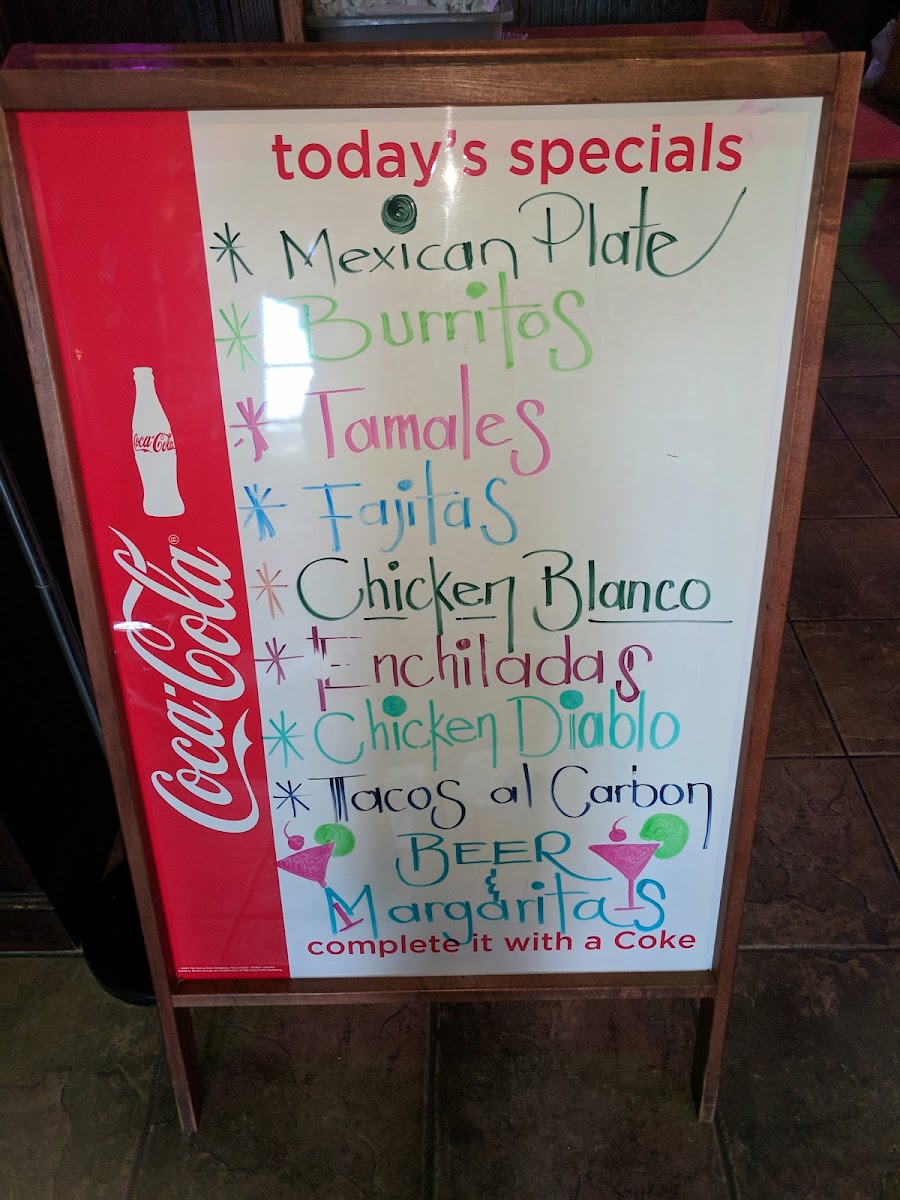 today's specials
* Mexican Plate
* Burritos
* Tamales
* Fajitas
* Chicken Blanco
* Enchiladas
* Chicken Diablo
* Tacos al Carbon
BEER
&
Margaritas
complete it with a Coke
Coca-Cola
Coca-Cola®